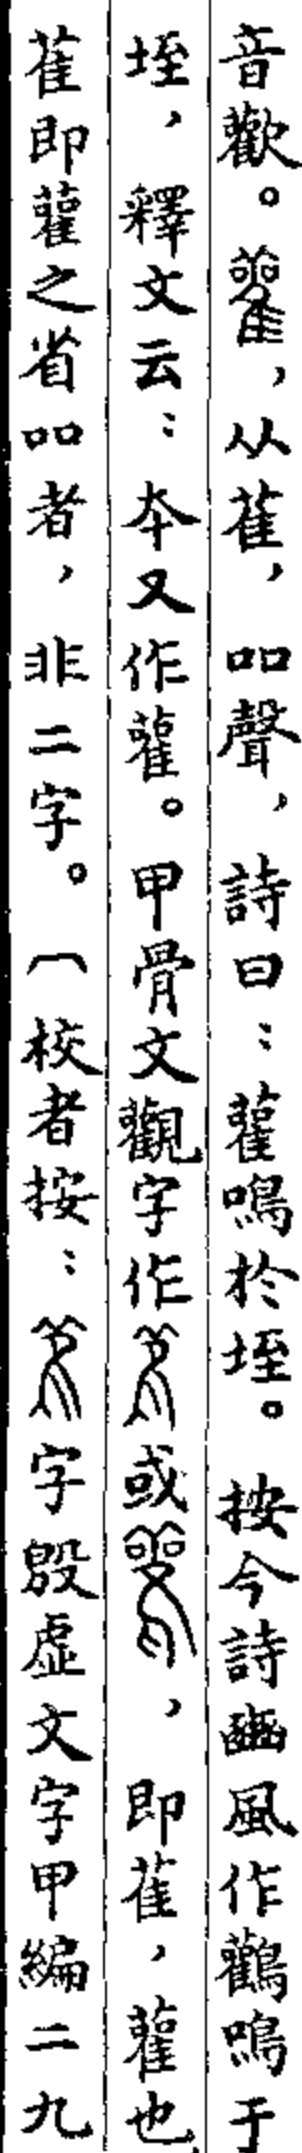 音歡。雚，从萑，吅聲，詩曰：雚鳴於垤。按今詩豳風作鸛鳴于
垤，釋文云：本又作雚。甲骨文觀字作或，即萑，雚也
萑即雚之省吅者，非二字。（校者按：字殷虛文字甲編二九